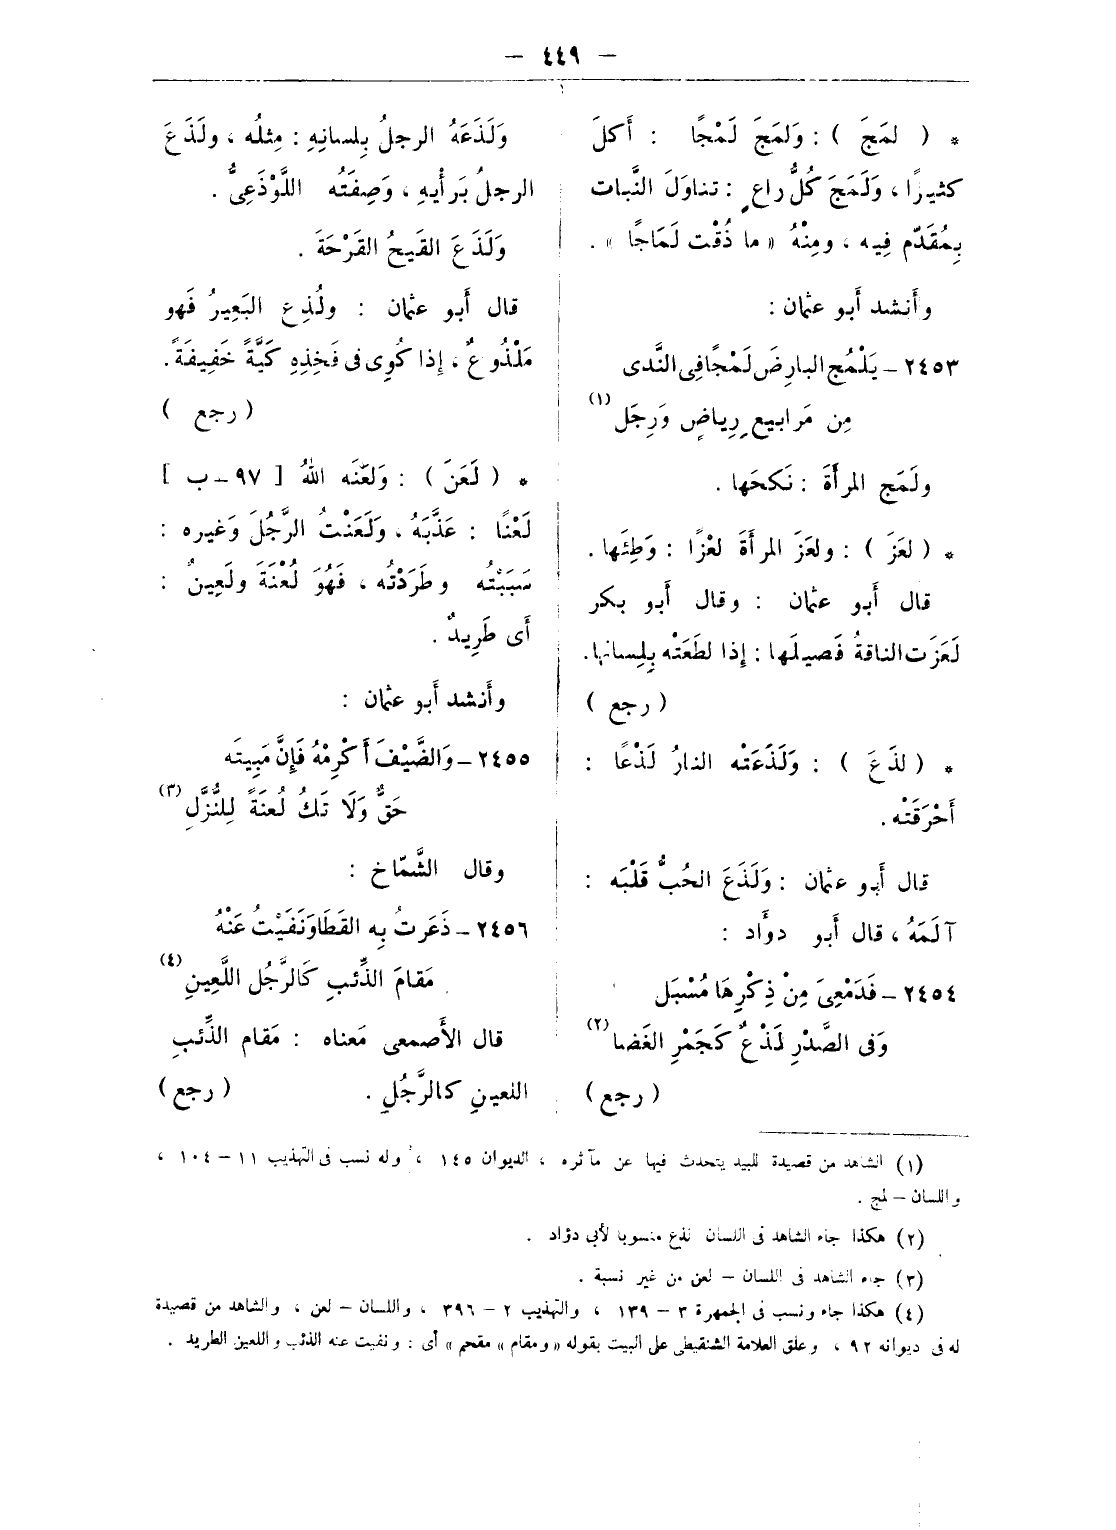 — ٤٤٩ —
* ( لمَجَ ) : وَلمَجَ لَمْجًا : أَكلَ
كثيرًا ، وَلَمَجَ كُلُّ راعٍ : تناوَلَ النَّبات
بِمُقَدّم فِيه ، ومِنْهُ « ما ذُقْت لَمَاجًا » .
وأَنشد أَبو عثمان :
٢٤٥٣ – يَلْمُج البارِضَ لَمْجًا فِى النَّدى
مِن مَرابيعِ رِياضٍ وَرِجَل (١)
ولَمَج المرأَةَ : نَكحَها .
* ( لعَزَ ) : ولعَزَ المرأَةَ لعْزًا : وَطِئَها .
قال أَبو عثمان : وقال أَبو بكر
لَعَزَت الناقةُ فَصيلَها : إِذا لطَعَتْه بِلِسانها .
( رجع )
* ( لذَعَ ) : وَلَذَعَتْه النارُ لَذْعًا :
أَحْرَقَتْه .
قال أَبو عثمان : وَلَذَعَ الحُبُّ قَلْبَه :
آلَمَهُ ، قال أَبو دوأَد :
٢٤٥٤ – فَدَمْعِىَ مِنْ ذِكْرِهَا مُسْبَل
وَفى الصَّدْرِ لَذْعٌ كَجَمْرِ الغَضا (٢)
( رجع )
وَلَذَعَهُ الرجلُ بِلسانِهِ : مِثلُه ، ولَذَعَ
الرجلُ بَرأْيهِ ، وَصِفَتُه اللَّوْذَعِىُّ .
وَلَذَعَ القَيحُ القَرْحَةَ .
قال أَبو عثمان : ولُذِع البَعِيرُ فَهو
مَلْذُوعٌ ، إِذا كُوِى فى فَخِذِهِ كَيَّةً خَفِيفَةً .
( رجع )
* ( لَعَنَ ) : وَلعَنَه اللهُ [ ٩٧ – ب ]
لَعْنًا : عَذَّبَهُ ، وَلَعَنْتُ الرَّجُلَ وَغيره :
سَبَبْتُه وطَرَدْتُه ، فَهُوَ لُعْنَةَ ولَعِينٌ :
أَى طَرِيدٌ .
وأَنشد أَبو عثمان :
٢٤٥٥ – وَالضَّيْفَ أَكْرِمْهُ فَإِنَّ مَبِيتَه
حَقٌّ وَلَا تَكُ لُعنَةً لِلنُّزَّلِ (٣)
وقال الشَّمّاخ :
٢٤٥٦ – ذَعَرتُ بِه القَطَا وَنَفَيْتُ عَنْهُ
مَقامَ الذِّئبِ كَالرَّجُل اللَّعِينِ (٤)
قال الأَصمعى مَعناه : مَقام الذِّئبِ
اللعينِ كالرَّجُلِ . ( رجع )
(١) الشاهد من قصيدة للبيد يتحدث فيها عن مآثره ، الديوان ١٤٥ ، وله نسب فى التهذيب ١١ – ١٠٤ ،
واللسان – لمج .
(٢) هكذا جاء الشاهد فى اللسان لذع منسوبا لأبى دؤاد .
(٣) جاء الشاهد فى اللسان – لعن من غير نسبة .
(٤) هكذا جاء ونسب فى الجمهرة ٣ – ١٣٩ ، والتهذيب ٢ – ٣٩٦ ، واللسان – لعن ، والشاهد من قصيدة
له فى ديوانه ٩٢ ، وعلق العلامة الشنقيطى على البيت بقوله « ومقام » مقحم » أى : ونفيت عنه الذئب واللعين الطريد .